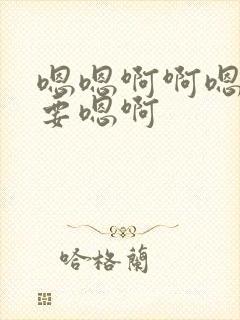 嗯嗯啊啊嗯
要嗯啊
哈格蘭